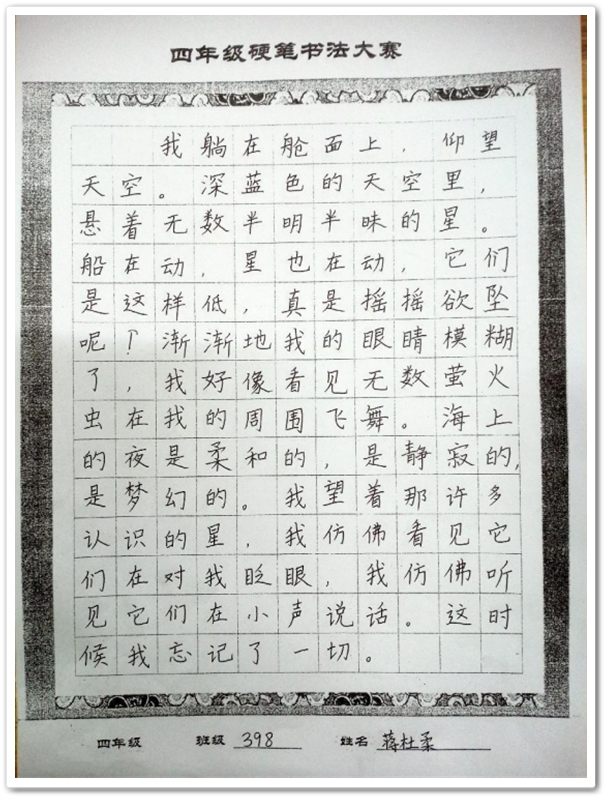 四年级硬笔书法大赛
我躺在舱面上，仰望
天空。深蓝色的天空里，
悬着无数半明半昧的星。
船在动，星也在动，它们
是这样低，真是摇摇欲坠
呢！渐渐地我的眼睛模糊
了，我好像看见无数萤火
虫在我的周围飞舞。海上
的夜是柔和的，是静寂的，
是梦幻的。我望着那许多
认识的星，我仿佛看见它
们在对我眨眼，我仿佛听
见它们在小声说话。这时
候我忘记了一切。
四年级 班级 398 姓名 蒋杜柔